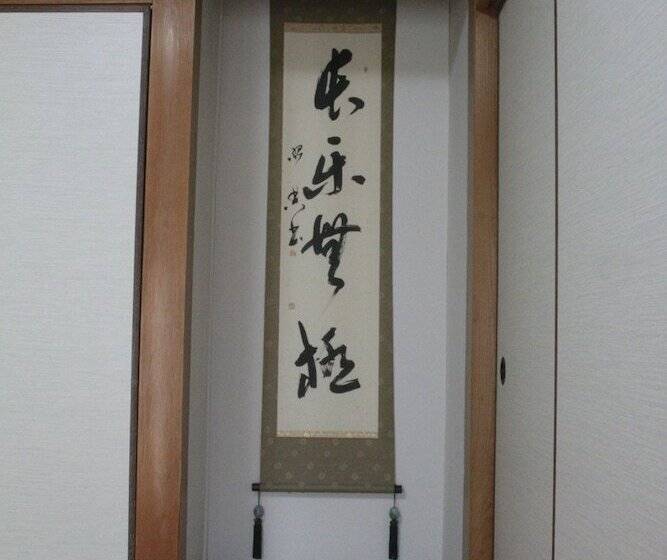 長楽無極